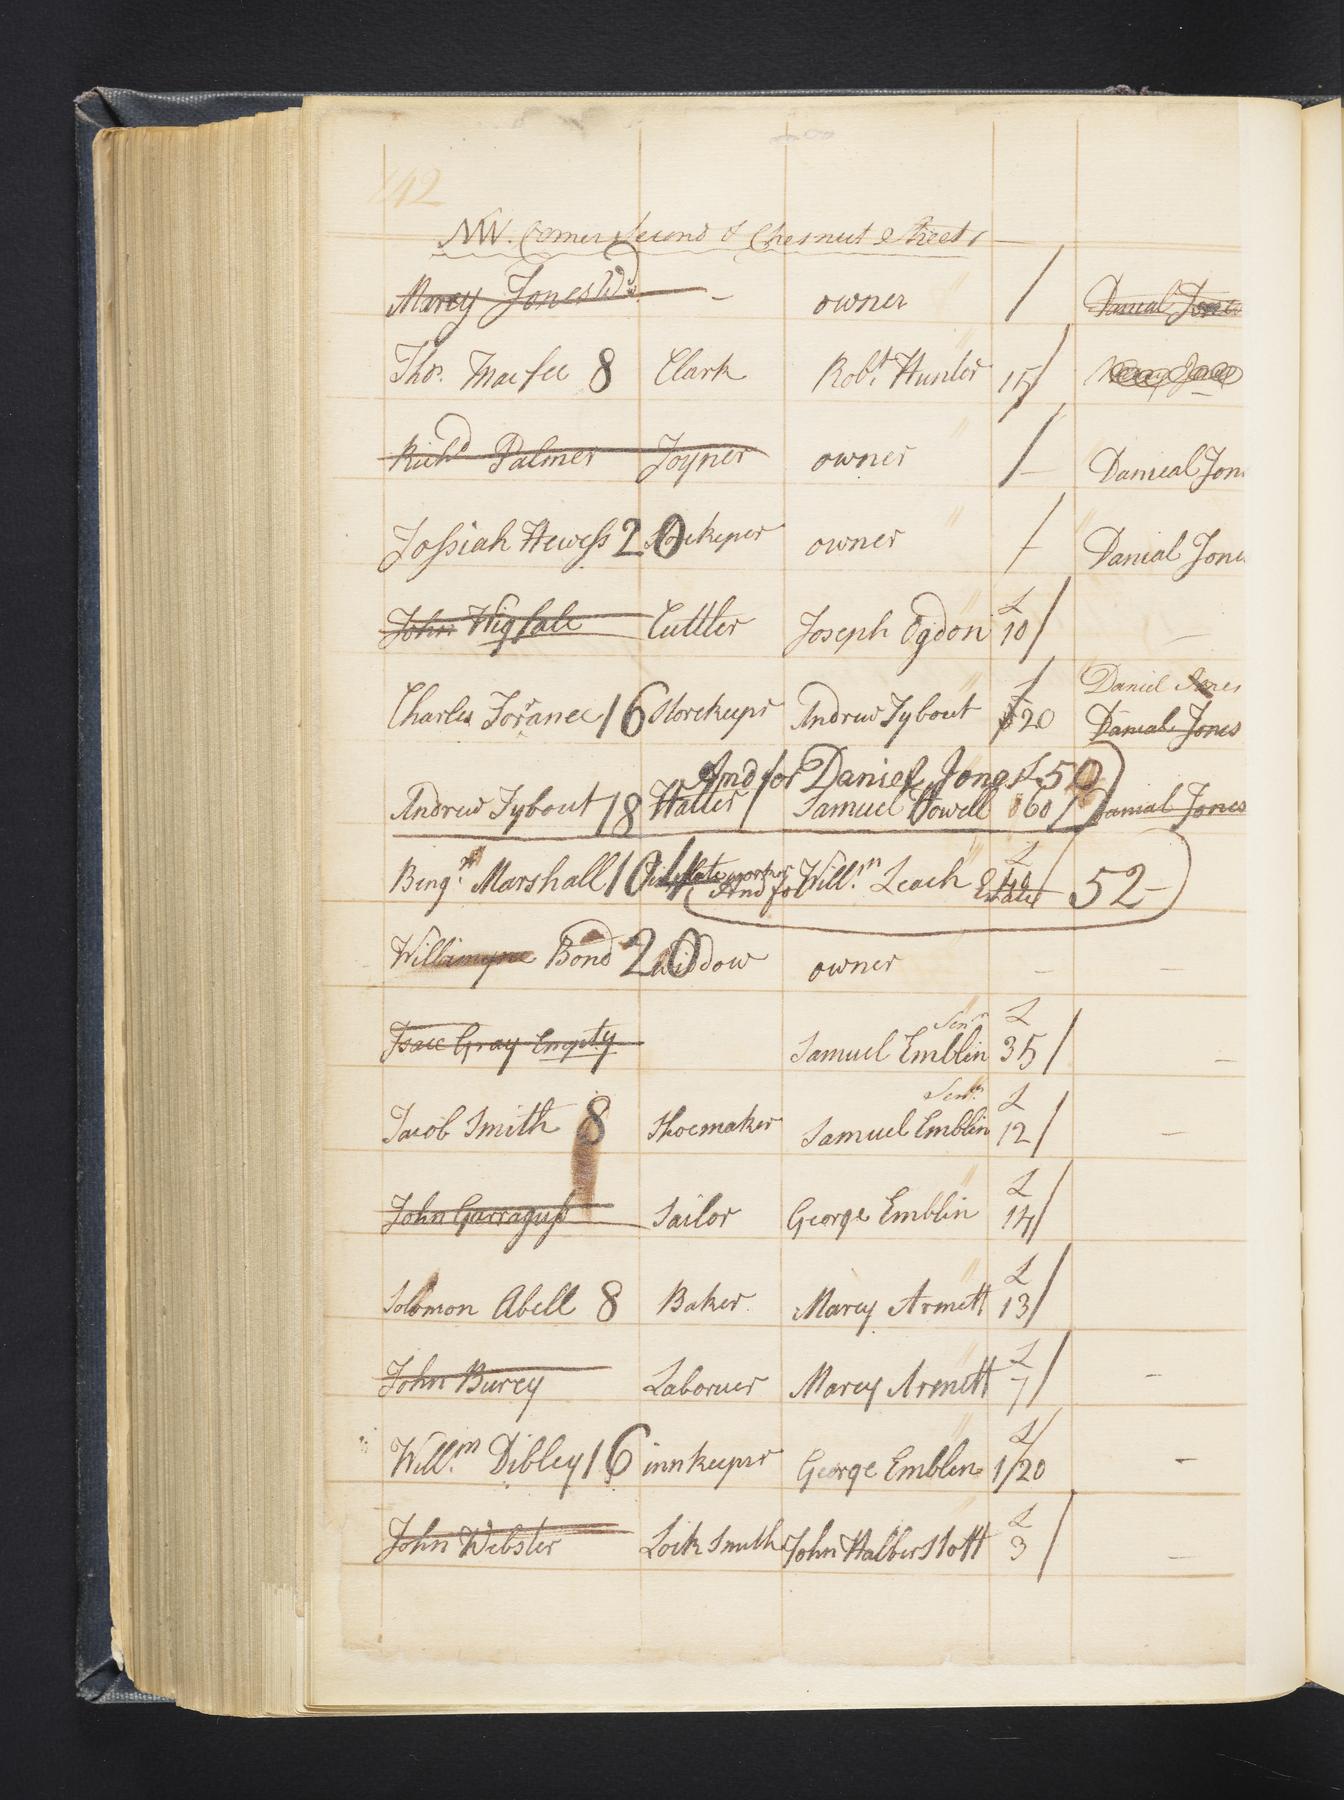 142
NW. Corner Second & Chesnut Streets
Marcy Jones Wd. - owner / Danial Jones
Thos. Macfee 8 Clark Robt. Hunter 15/
Richd Palmer Joyner owner / - Danieal Jon
Jossiah Hewess 20 Storekeper owner / Danial Jone
John Wigfall Cuttler Joseph Ogdon £ 10/ -
Daniel Jones
Charles Toranee 16 Storekeepr Andrew Tybout £ 20 Danial Jones
And for Daniel Jones £ 50
Andrew Tybout 18 Hatter / Samuel Howell 60 / Danial Jones
Benjn. Marshall 104 Willm. Leach £
And for Estate 52-
Bond 20 Widdow owner - -
Isaac Gray Empty Samuel Emblin Senr £ 35/ -
Jacob Smith 8 Shoemaker Samuel Emblin Senr £ 12/ -
John Garraguss Sailor George Emblin £ 14/
Solomon Abell 8 Baker Marcy Armett £ 13/
John Burcy Laboruer Marcy Armett £ 7/ -
Willm. Dibley 16 innkeepr George Emblen £ 1/20 -
John Webster Lock Smith John Halberstott £ 3/ -